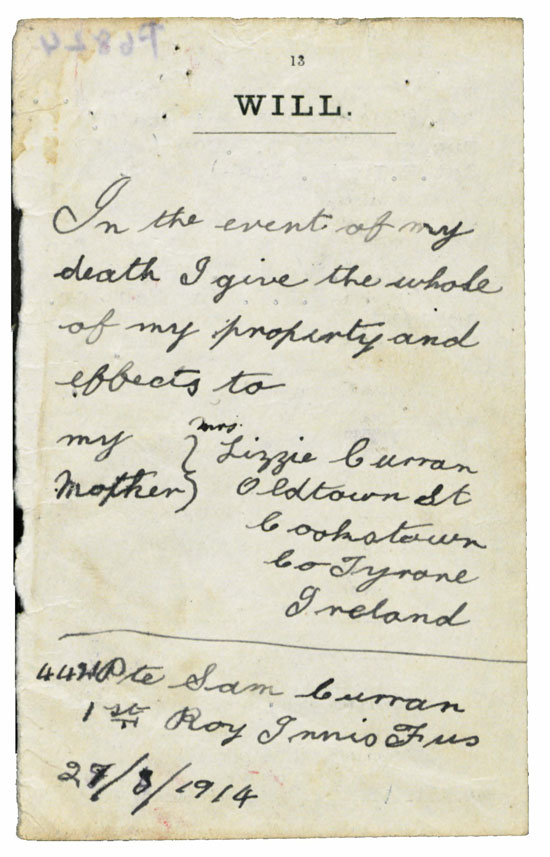 P6824
13
WILL.
In the event of my
death I give the whole
of my property and
effects to
my } Mrs. Lizzie Curran
Mother } Oldtown St
Cookstown
Co Tyrone
Ireland
Pte Sam Curran
1st Roy Innis Fus
27/8/1914